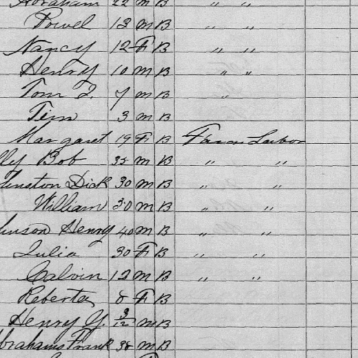 Abraham 22 m B " "
Powel 13 m B " "
Nancy 12 F B " "
Henry 10 m B " "
Tom J. 7 m B "
Tim 3 m B
Margaret 19 F B Farm Labor
Bob 32 m B " "
Dick 30 m B " "
William 30 m B " "
Henry 40 m B " "
Julia 30 F B " "
Calvin 12 m B " "
Roberta 8 F B
Henry Y. 3/12 m B
Abrahams Frank 38 m B